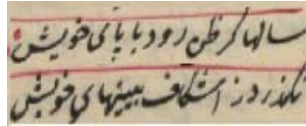 سالها گر ظن رود با پای خویش
نگذرد ز اشکاف بینیهای خویش